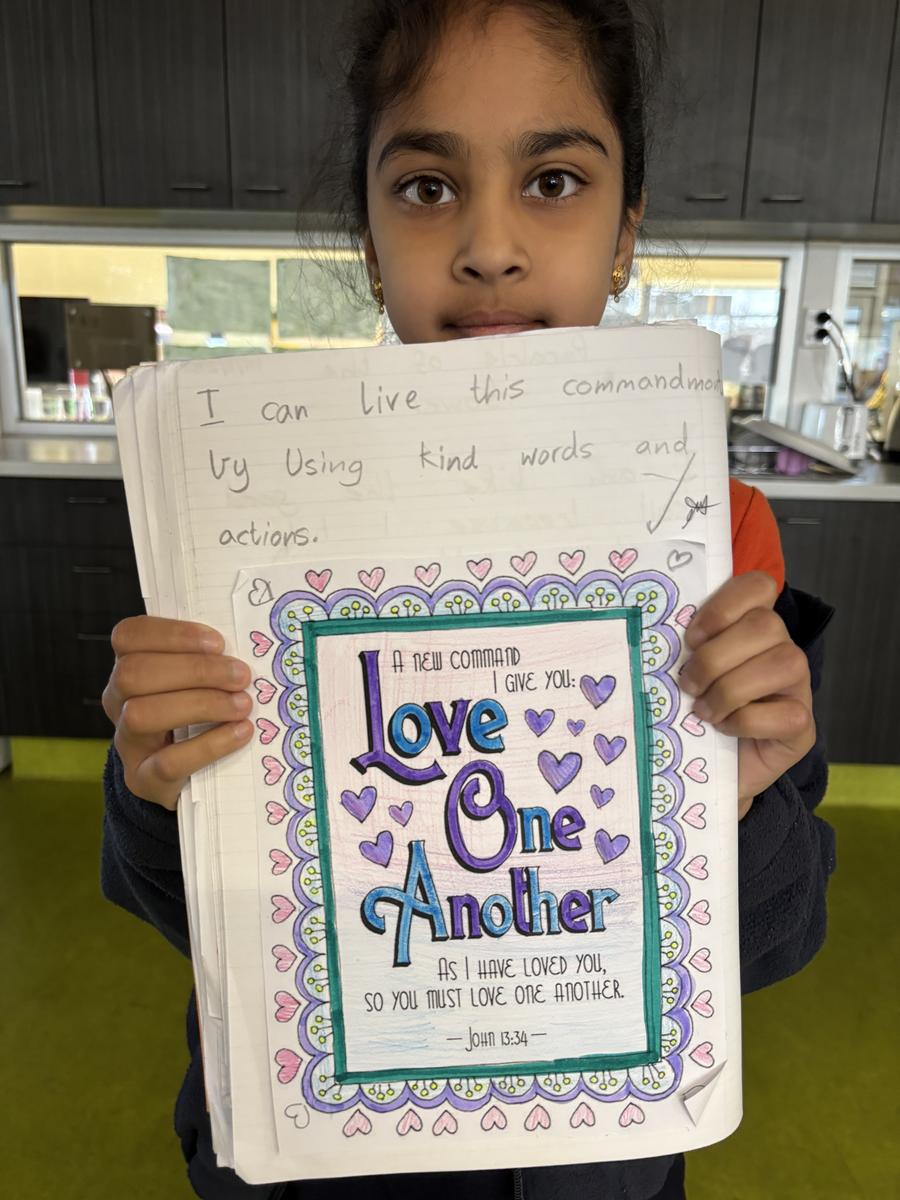 I can live this commandment
by Using kind words and
actions.
A NEW COMMAND
I GIVE YOU:
Love
One
Another
AS I HAVE LOVED YOU,
SO YOU MUST LOVE ONE ANOTHER.
— JOHN 13:34 —